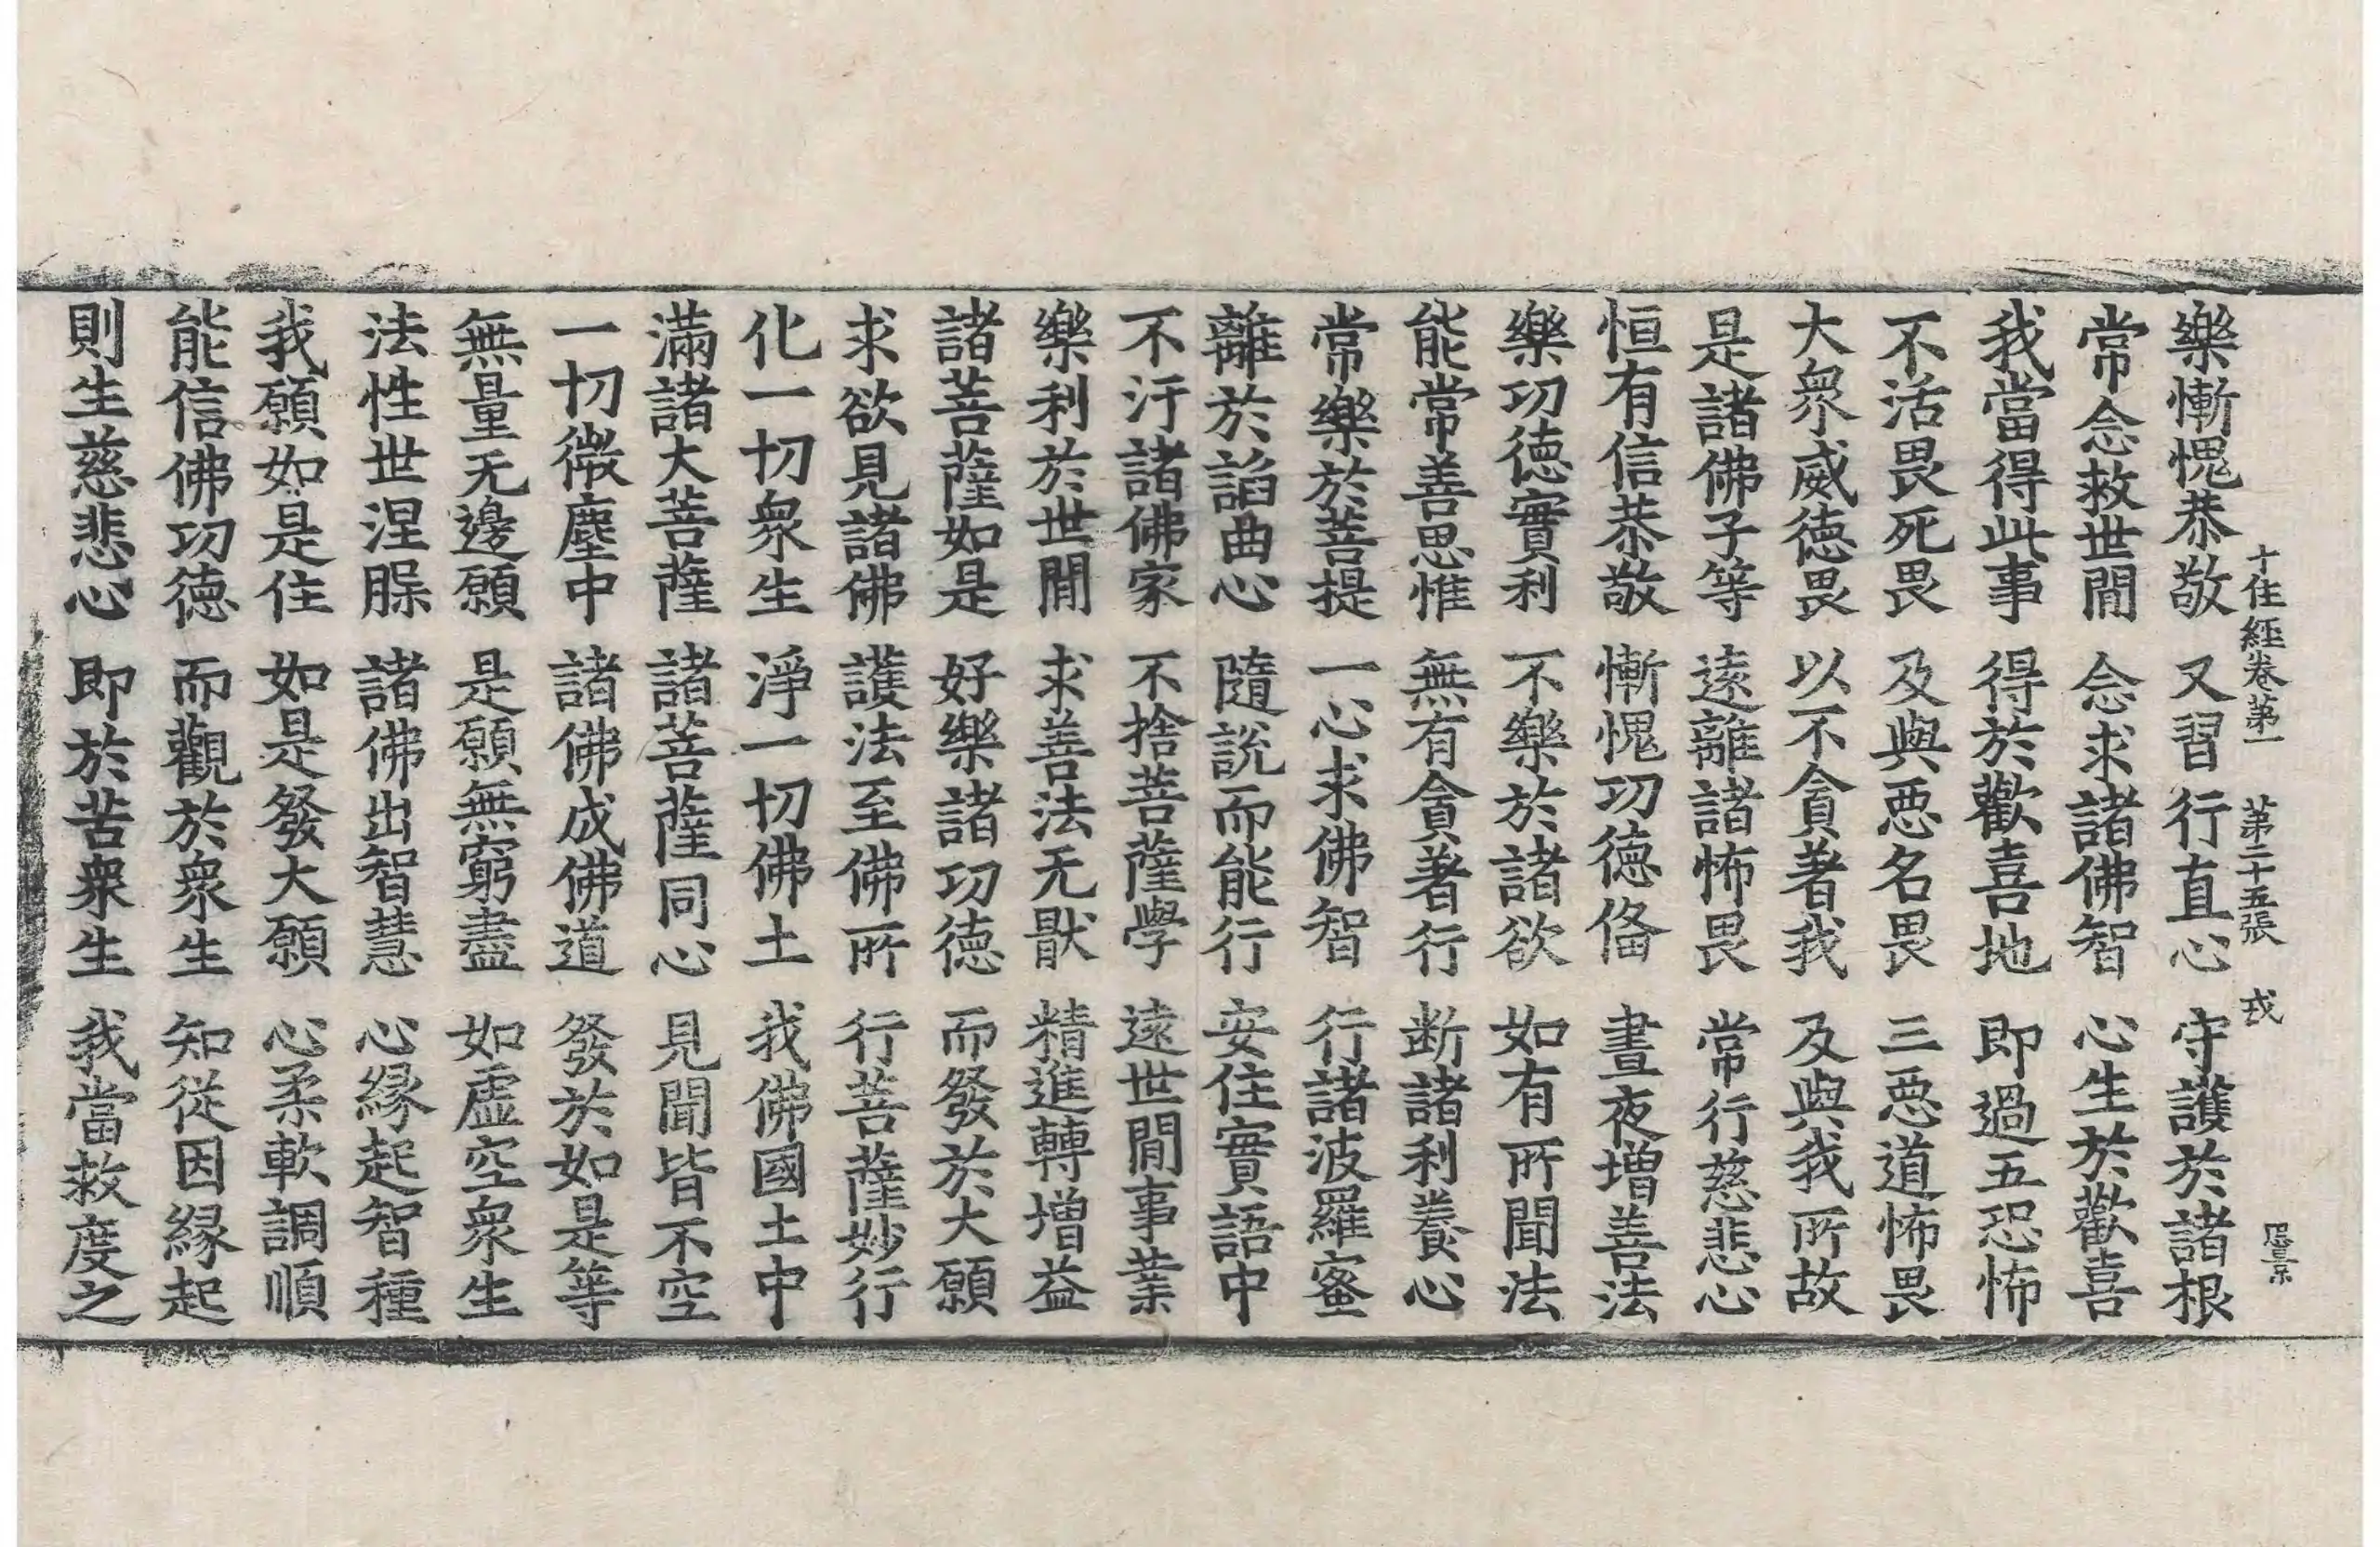 十住經卷第一　第二十五張　戎
樂慚愧恭敬　又習行直心　守護於諸根
常念救世間　念求諸佛智　心生於歡喜
我當得此事　得於歡喜地　即過五恐怖
不活畏死畏　及與惡名畏　三惡道怖畏
大衆威德畏　以不貪著我　及與我所故
是諸佛子等　遠離諸怖畏　常行慈悲心
恒有信恭敬　慚愧功德俻　晝夜增善法
樂功德實利　不樂於諸欲　如有所聞法
能常善思惟　無有貪著行　斷諸利養心
常樂於菩提　一心求佛智　行諸波羅蜜
離於謟曲心　隨說而能行　安住實語中
不汙諸佛家　不捨菩薩學　遠世間事業
樂利於世間　求善法无猒　精進轉增益
諸菩薩如是　好樂諸功德　而發於大願
求欲見諸佛　護法至佛所　行菩薩妙行
化一切衆生　淨一切佛土　我佛國土中
滿諸大菩薩　諸菩薩同心　見聞皆不空
一切微塵中　諸佛成佛道　發於如是等
無量无邊願　是願無窮盡　如虛空衆生
法性世涅槃　諸佛出智慧　心緣起智種
我願如是住　如是發大願　心柔軟調順
能信佛功德　而觀於衆生　知從因緣起
則生慈悲心　即於苦衆生　我當救度之